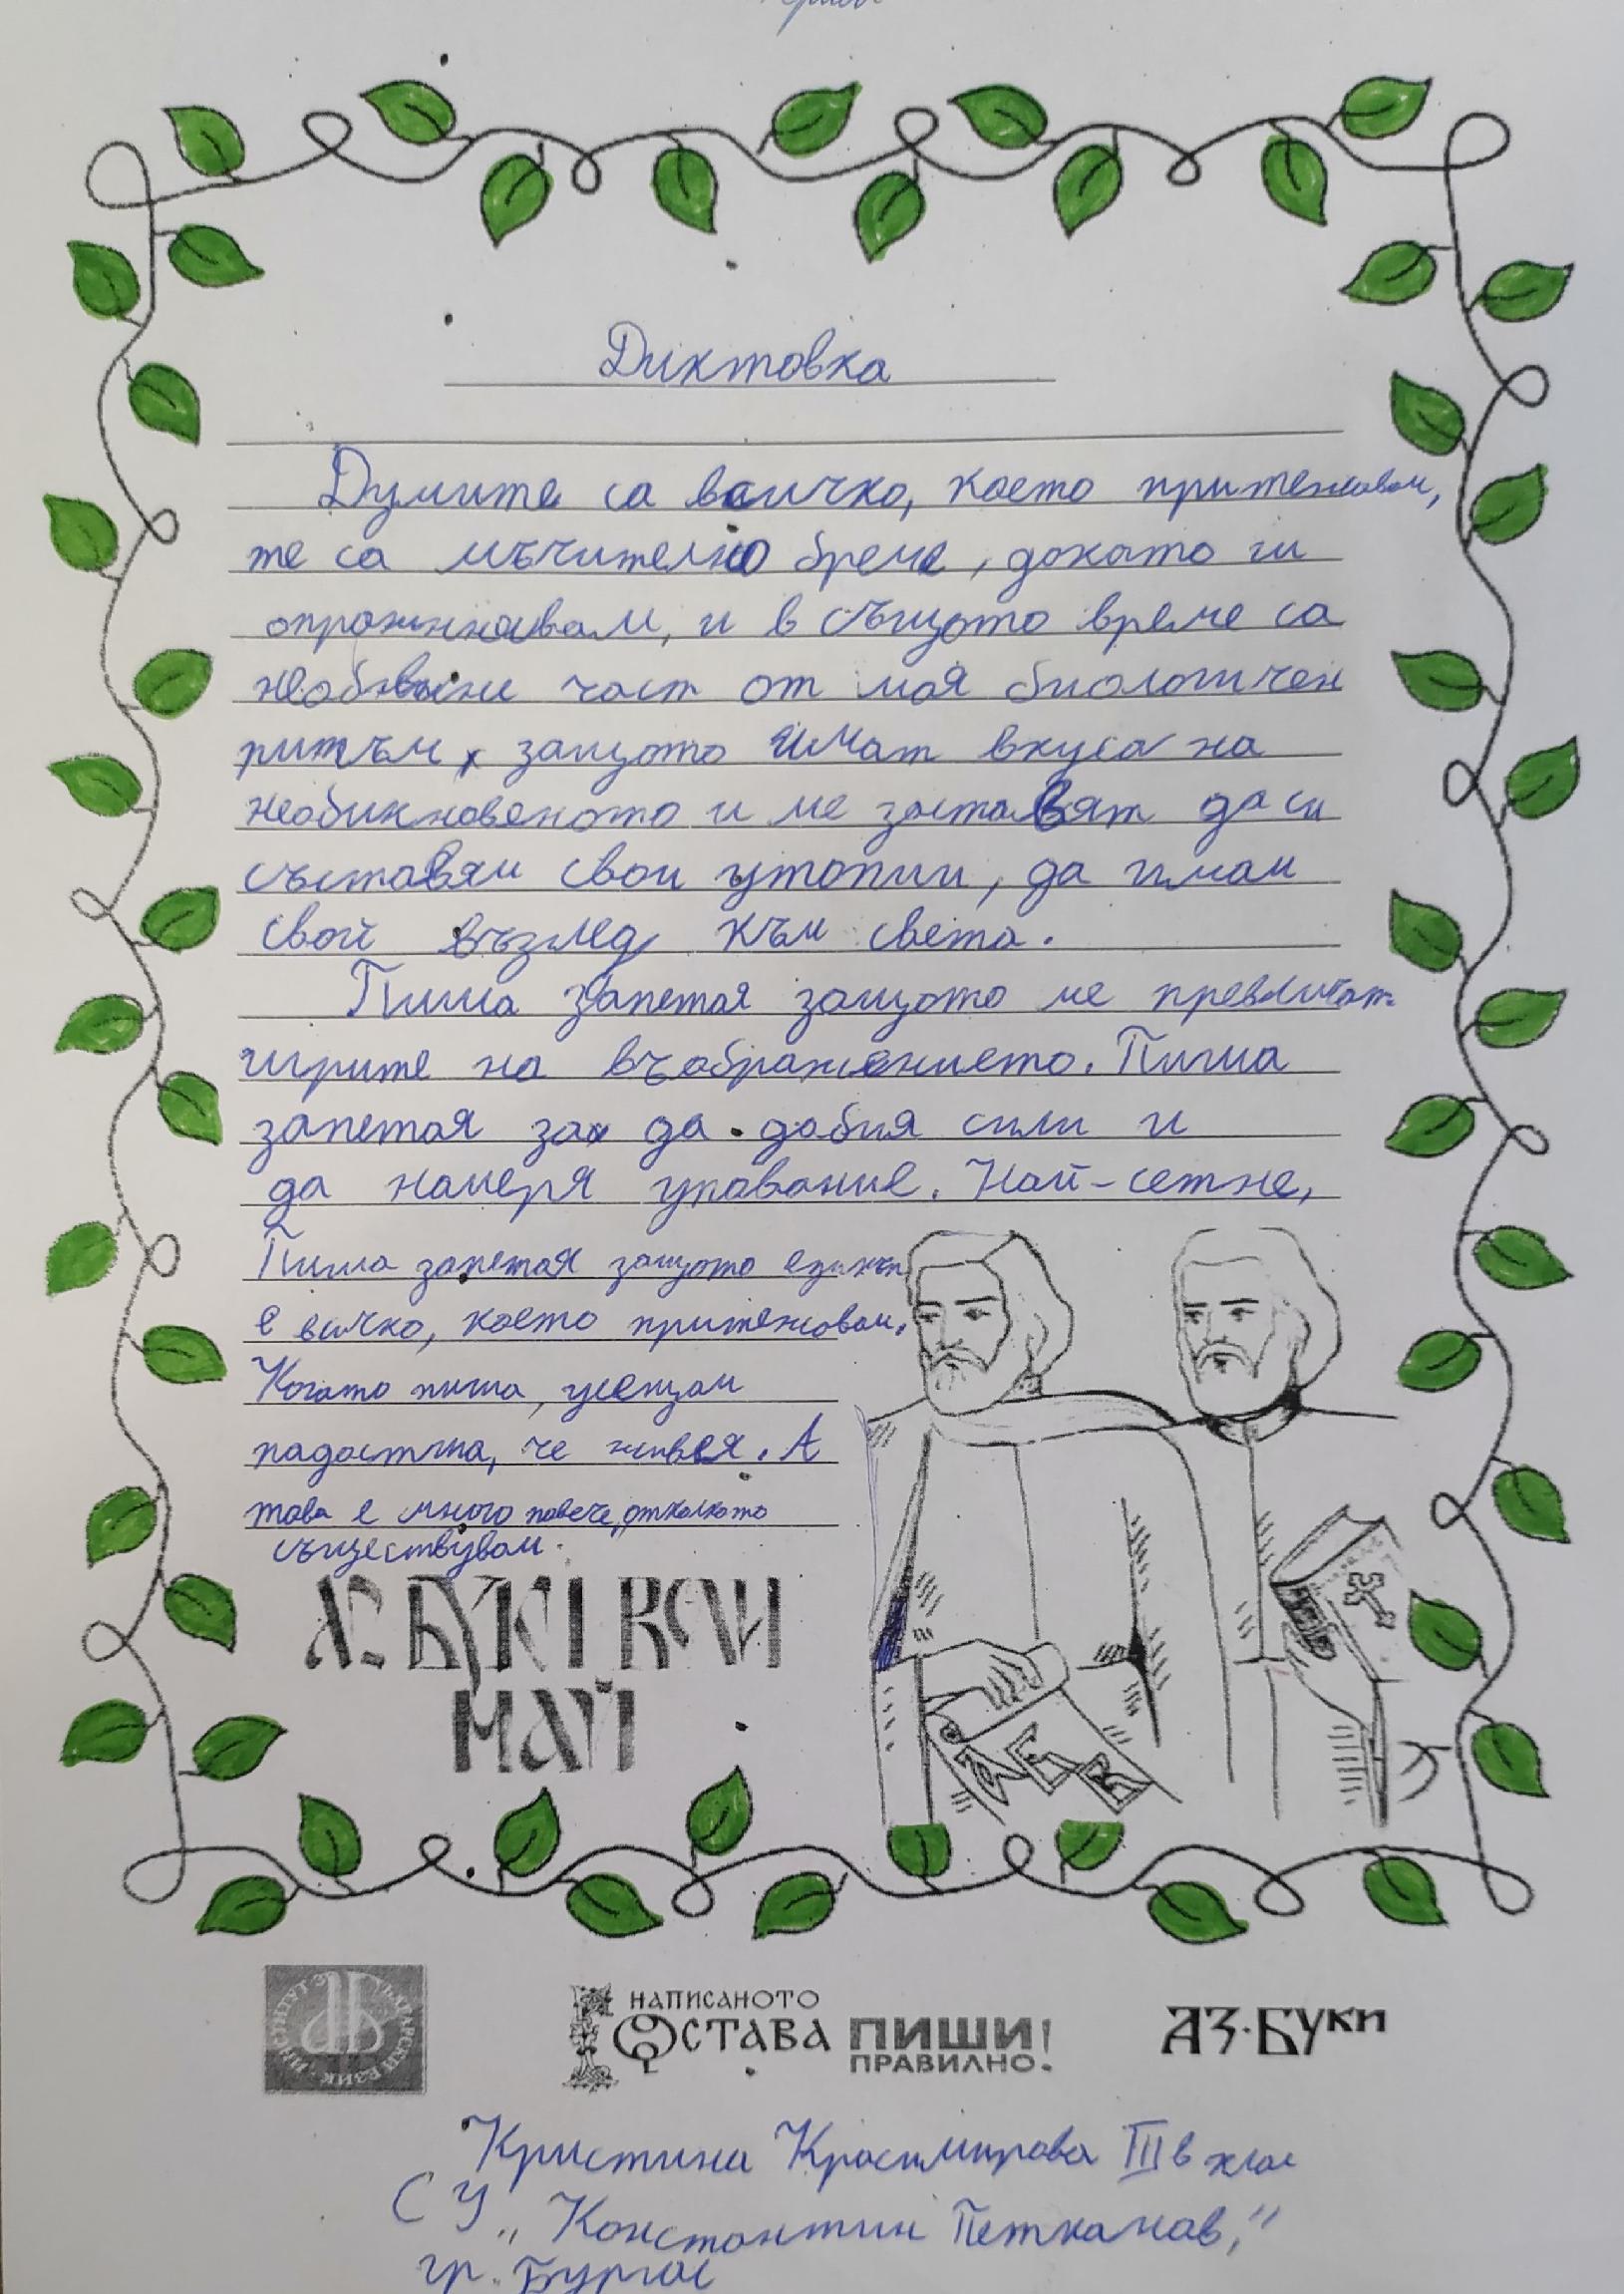 Диктовка
Думите са всичко, което притежавам,
те са мъчително бреме, докато ги
опражнявам, и в същото време са
част от моя биологичен
ритъм, защото имат вкуса на
необикновеното и ме заставят да си
съставям свои утопии, да имам
свой възглед към света.
Пиша запетая защото ме превличат
игрите на въображението. Пиша
запетая за да добия сили и
да намеря упование. Най-сетне,
Пиша запетая защото езикът
е вичко, което притежавам.
Когато пиша, усещам
че живея. А
това е много повече, отколкото
съществувам.
АЗ БУКИ ВСИ
МАЙ
А Б В
ИНСТИТУТ ЗА БЪЛГАРСКИ ЕЗИК
НАПИСАНОТО
ОСТАВА ПИШИ
ПРАВИЛНО!
АЗ·БУКИ
Кристина Красимирова III в клас
СУ „Константин Петканов,"
гр. Бургас